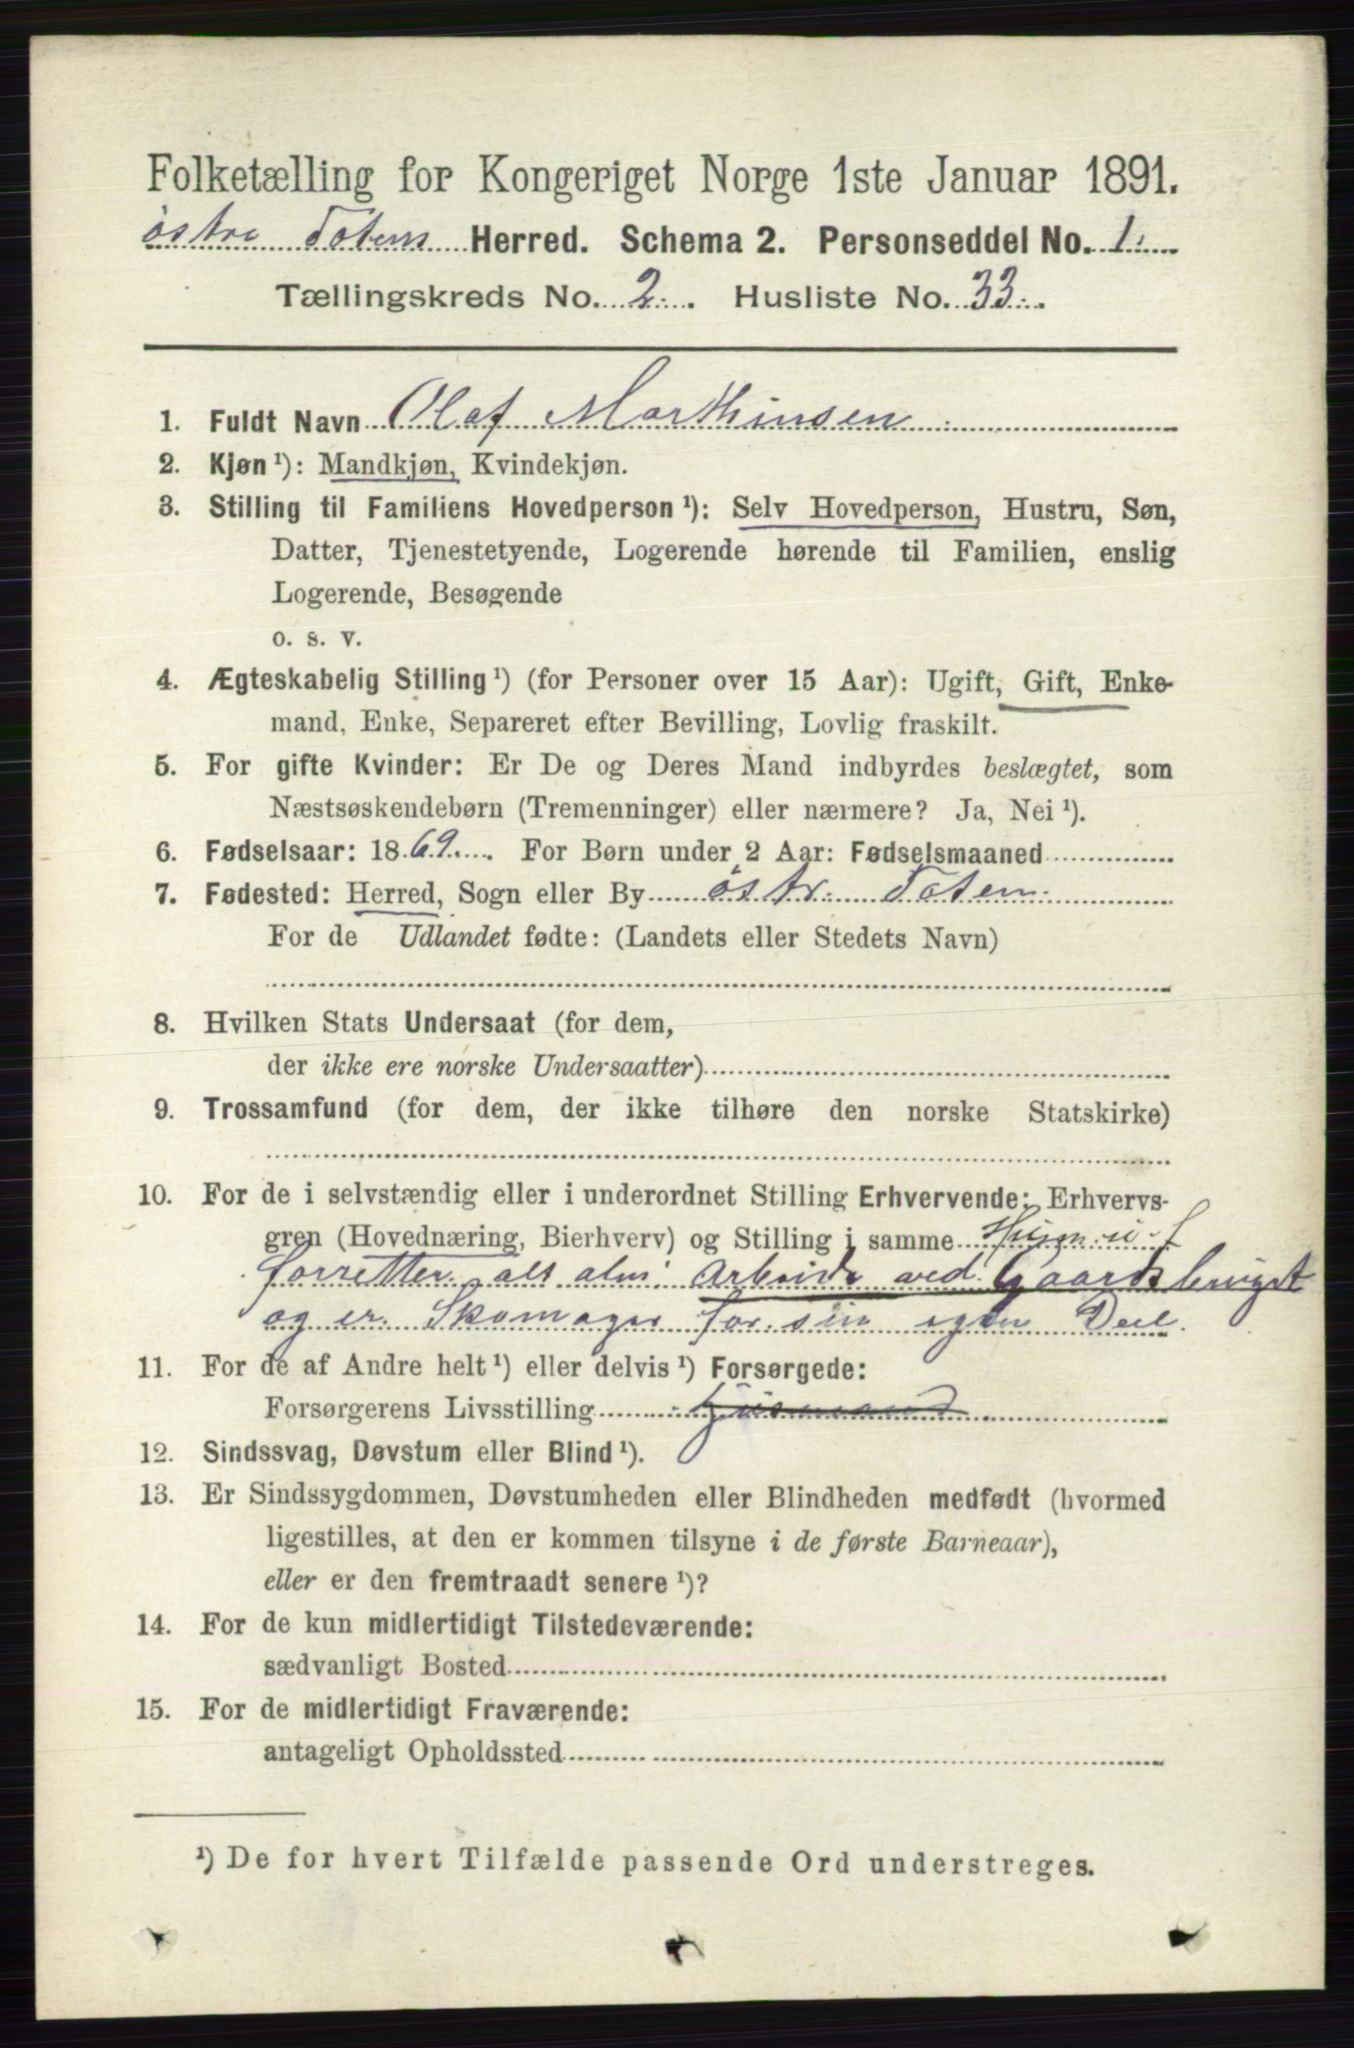 Folketælling for Kongeriget Norge 1ste Januar 1891.
østre Toten Herred. Schema 2. Personseddel No. 1.
Tællingskreds No. 2. Husliste No. 33.
1. Fuldt Navn Olaf Marthinsen
2. Kjøn ¹): Mandkjøn, Kvindekjøn.
3. Stilling til Familiens Hovedperson ¹): Selv Hovedperson, Hustru, Søn,
Datter, Tjenestetyende, Logerende hørende til Familien, enslig
Logerende, Besøgende
o. s. v.
4. Ægteskabelig Stilling ¹) (for Personer over 15 Aar): Ugift, Gift, Enke-
mand, Enke, Separeret efter Bevilling, Lovlig fraskilt.
5. For gifte Kvinder: Er De og Deres Mand indbyrdes beslægtet, som
Næstsøskendebørn (Tremenninger) eller nærmere? Ja, Nei ¹).
6. Fødselsaar: 1869. For Børn under 2 Aar: Fødselsmaaned
7. Fødested: Herred, Sogn eller By østr. Toten.
For de Udlandet fødte: (Landets eller Stedets Navn)
8. Hvilken Stats Undersaat (for dem,
der ikke ere norske Undersaatter)
9. Trossamfund (for dem, der ikke tilhøre den norske Statskirke)
10. For de i selvstændig eller i underordnet Stilling Erhvervende: Erhvervs-
gren (Hovednæring, Bierhverv) og Stilling i samme Husm. u. J
forretter alt alm. Arbeide ved Gaardsbruget
og er Skomager for sin egen Deel.
11. For de af Andre helt ¹) eller delvis ¹) Forsørgede:
Forsørgerens Livsstilling Husmand
12. Sindssvag, Døvstum eller Blind ¹).
13. Er Sindssygdommen, Døvstumheden eller Blindheden medfødt (hvormed
ligestilles, at den er kommen tilsyne i de første Barneaar),
eller er den fremtraadt senere ¹)?
14. For de kun midlertidigt Tilstedeværende:
sædvanligt Bosted
15. For de midlertidigt Fraværende:
antageligt Opholdssted
¹) De for hvert Tilfælde passende Ord understreges.